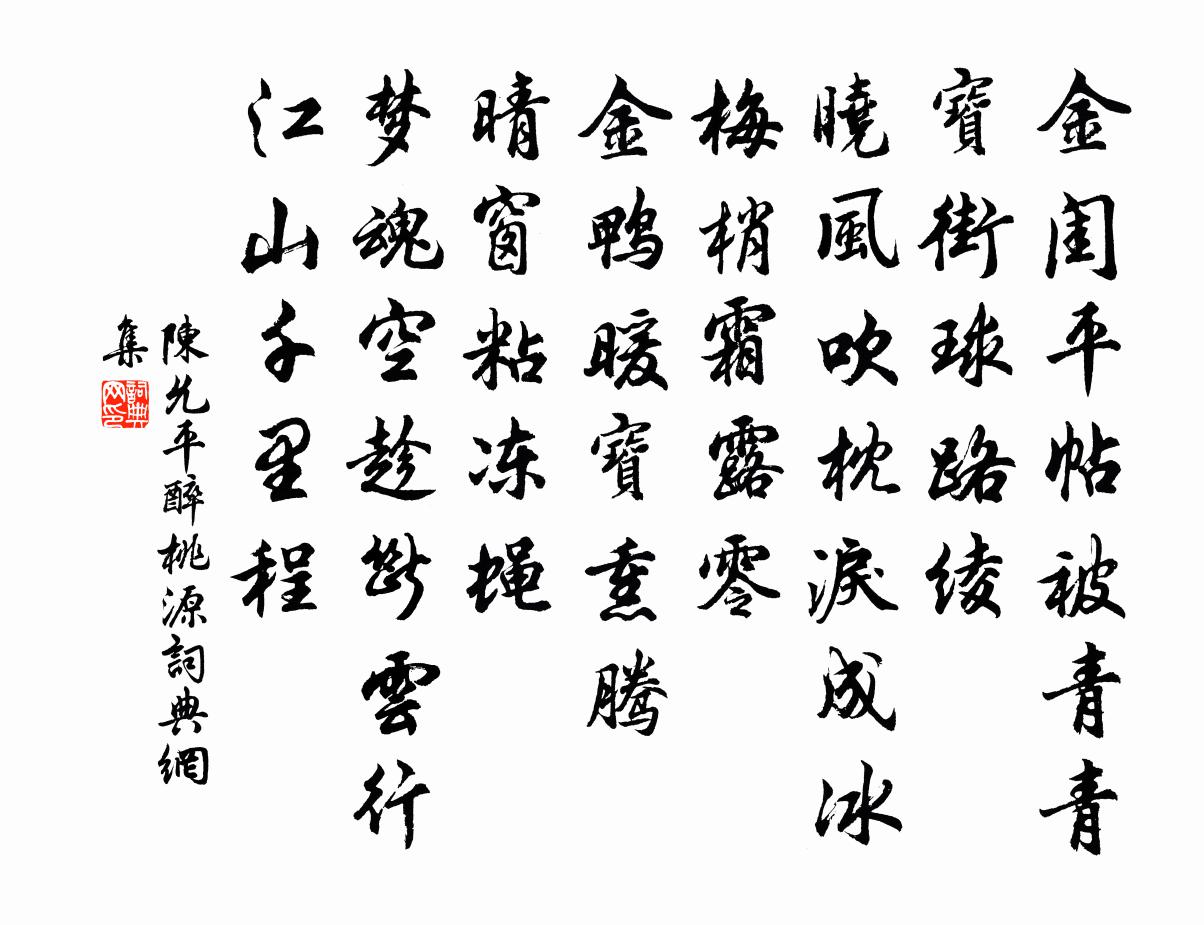 金閨平帖被青青
寶街球路綾
曉風吹枕淚成冰
梅梢霜露零
金鸭暖寶熏腾
晴窗粘冻蝇
梦魂空趁斷雲行
江山千里程
陳允平醉桃源詞典網
集
詞典
网印